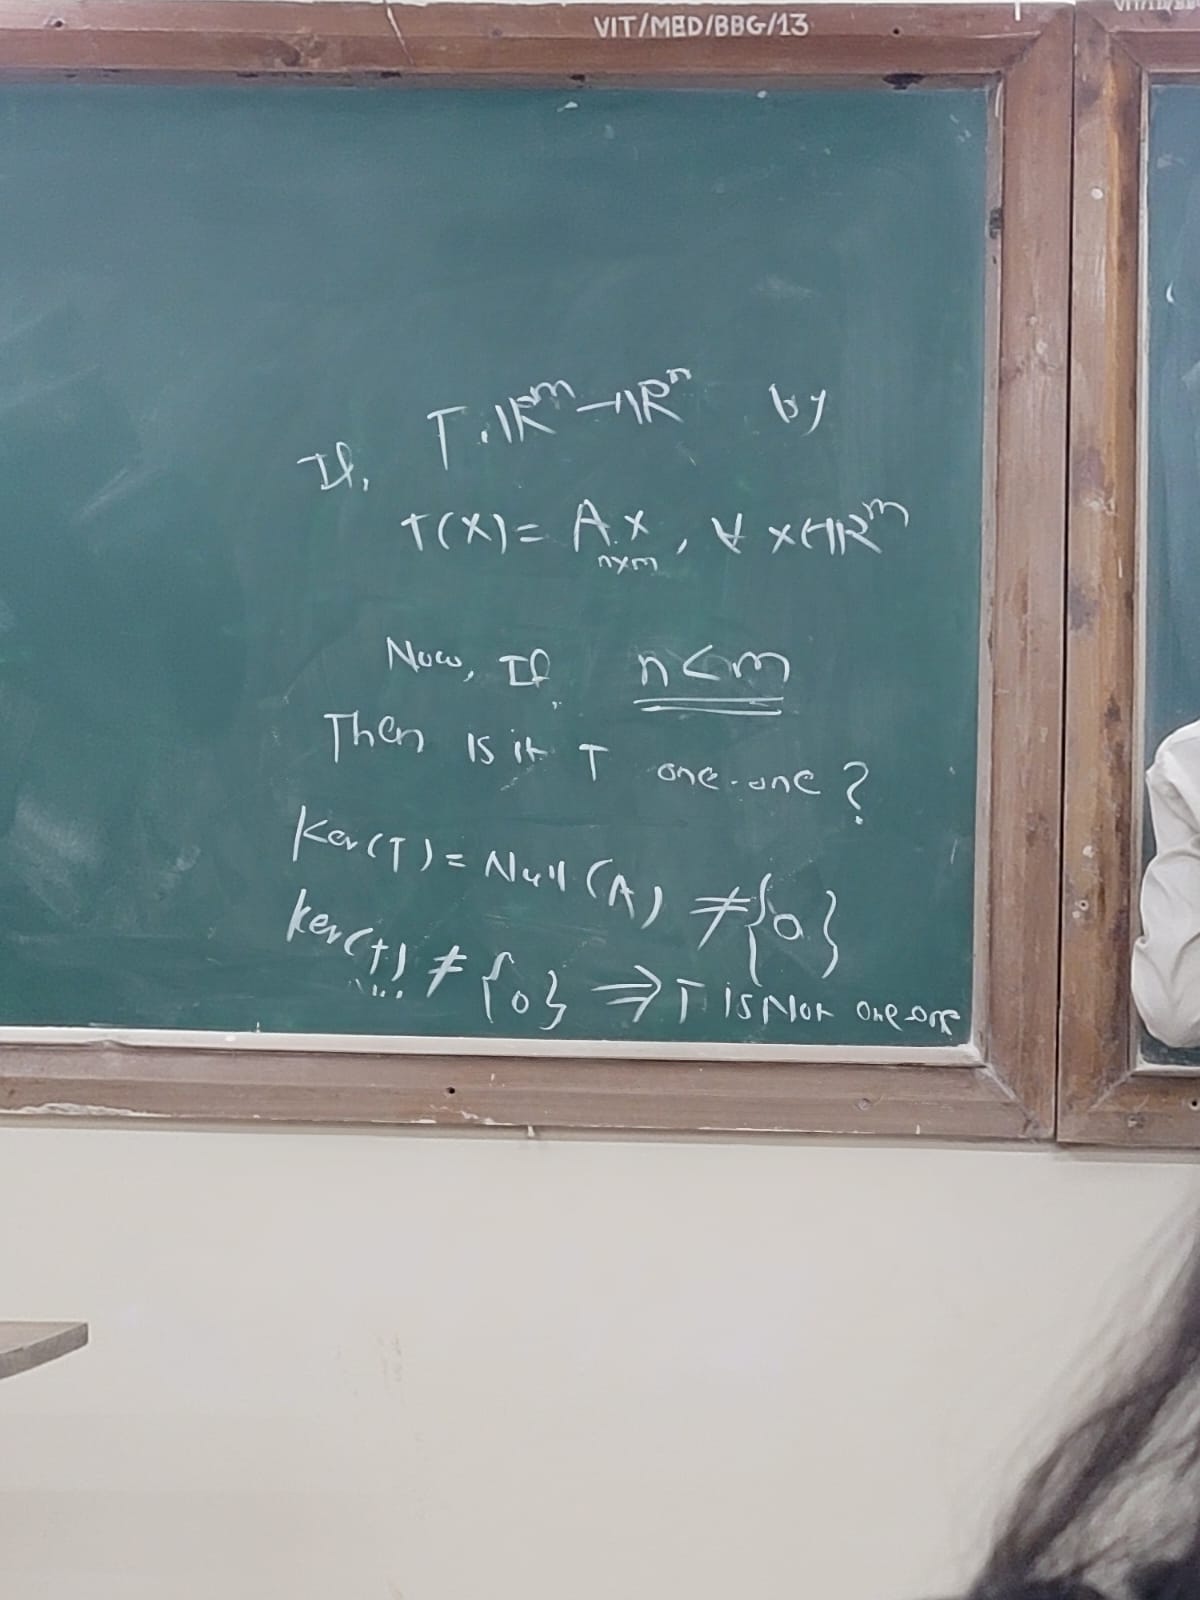 VIT/MED/BBG/13
If, T: ℝᵐ→ℝⁿ by
T(X) = A x, ∀ x∈ℝᵐ
n×m
Now, If n<m
Then Is it T one-one?
Ker(T) = Null(A) ≠ {0}
ker(T) ≠ {0} ⇒ T is Not one-one